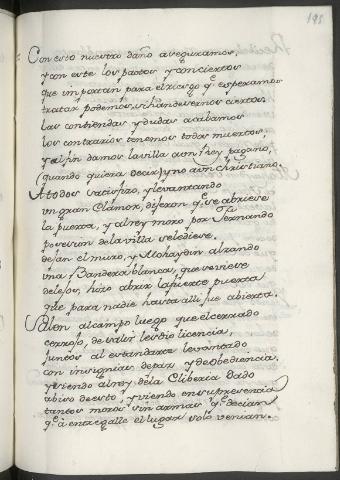 198
Con esto nuestro daño aseguramos,
y con este los pactos y conciertos
que importan para el riesgo q.e esperamos
tratar podemos, si han de sernos ciertos
las contiendas y dudas acabamos
los contrarios tenemos todos muertos,
y al fin damos la villa a un Rey pagano,
(quando quiera decir) y no a un christiano.
A todos satisfizo, y levantando
un gran clamor, dijeron q.e se abriese
la puerta, y al rey moro por Fernando
posesion de la villa se le diese.
dejan el muro, y Mohaydin alzando
una Bandera blanca, que se viese
de lejos, hizo abrir la fuerte puerta
que para nadie hasta alli fue abierta.
Salen al campo luego que el cerrado
cerrojo, de salir les dio licencia,
juntos al estandarte levantado
con insignias de paz y de obediencia,
y siendo al rey de la Cliberia dado
abiso de esto, y viendo en su presencia
tantos moros sin armas q.e decian
q.e à entregalle el lugar solo venian.